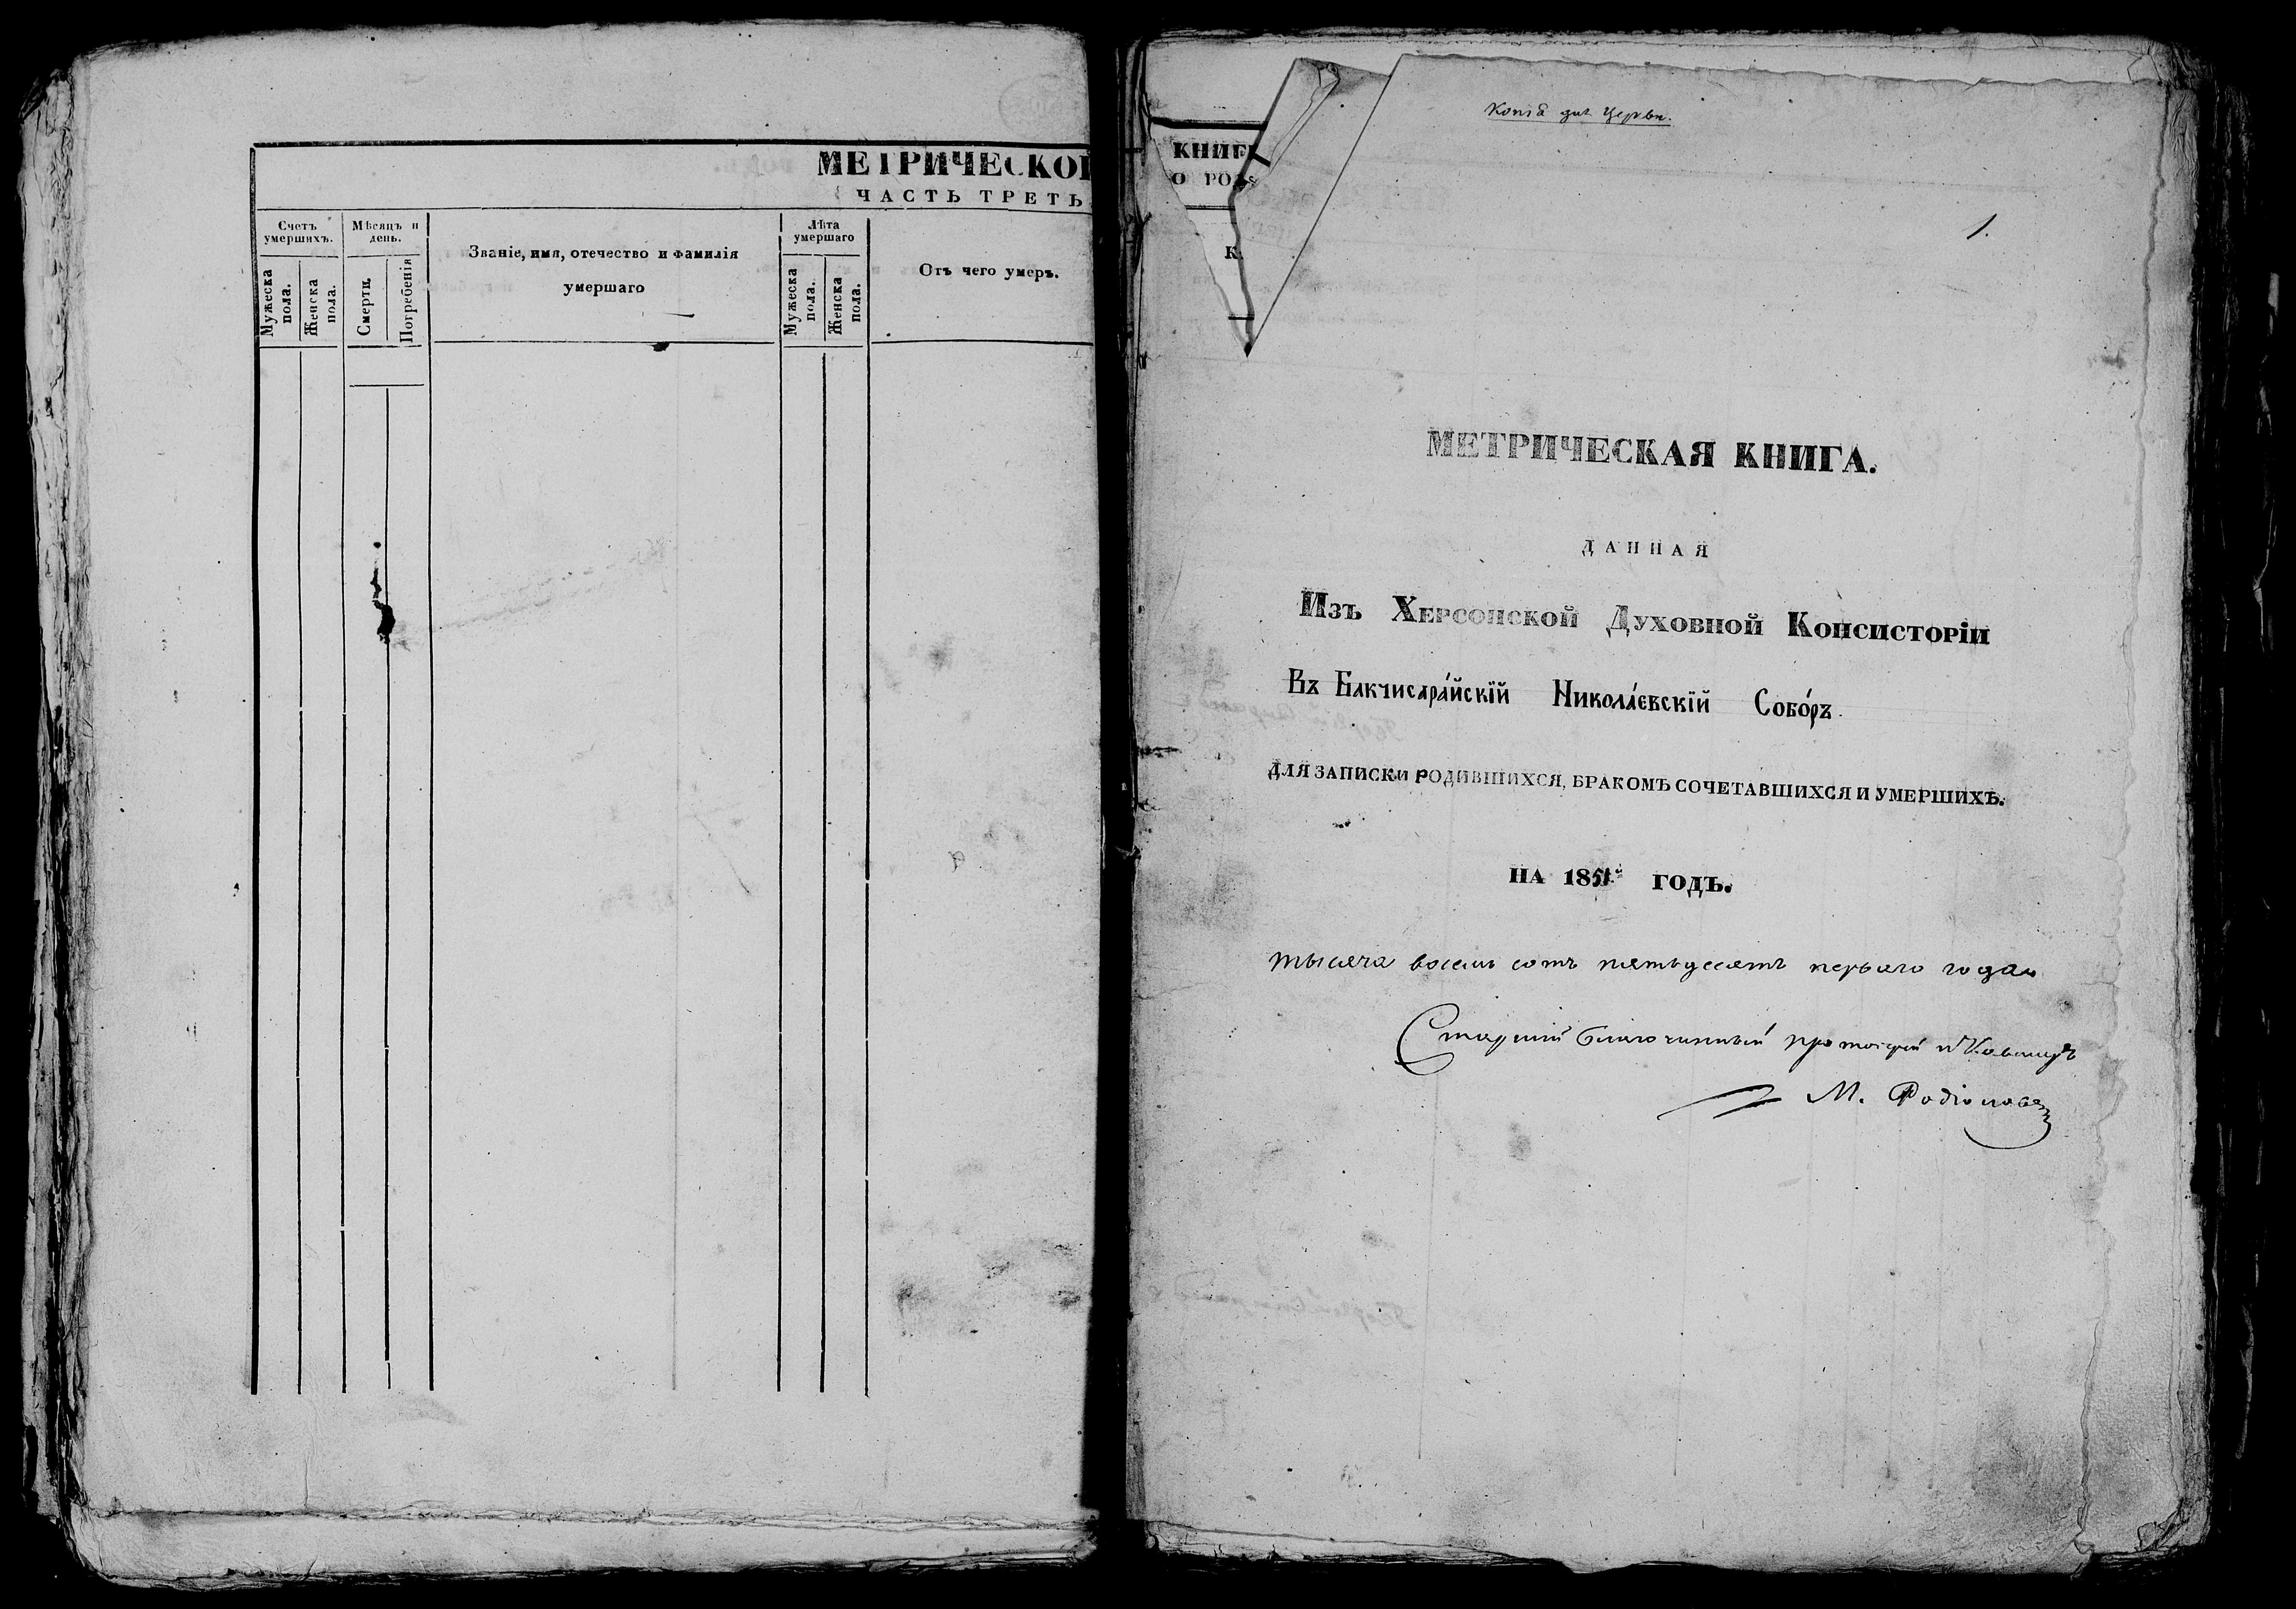 МЕТРИЧЕСКОЙ
ЧАСТЬ ТРЕТЬ
Счетъ умершихъ.
Мужеска пола.
Женска пола.
Мѣсяцъ и день.
Смерти.
Погребенія
Званіе, имя, отечество и фамилія
умершаго
Лѣта умершаго
Мужеска пола.
Женска пола.
Отъ чего умеръ.
КНИГ
О РОД
К
Копія для Церкви.
1.
МЕТРИЧЕСКАЯ КНИГА.
ДАННАЯ
Изъ Херсонской Духовной Консисторіи
Въ Бакчисара́йскій Никола́евскій Собо́ръ.
ДЛЯ ЗАПИСКИ РОДИВШИХСЯ, БРАКОМЪ СОЧЕТАВШИХСЯ И УМЕРШИХЪ.
НА 1851й ГОДЪ.
тысяча восемь сотъ пятьдесятъ перваго года
Старшій благочинный протоіерей и Кавалеръ
М. Родіоновъ